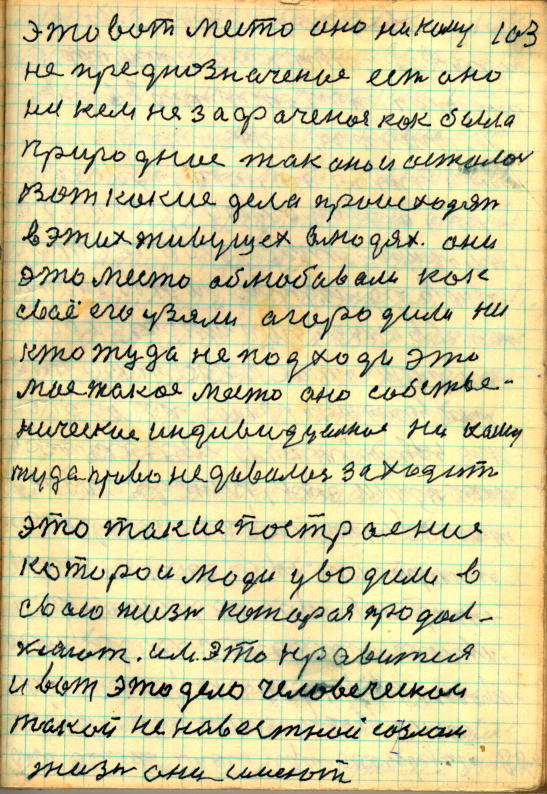 это вот место оно никому 103
не преднозначение ест оно
ни кем не захваченое как была
природние так оно и осталось
вот какие дела происходят
в этих живущех людях. они
это место облюбавали как
своё его узяли агородили ни
кто туда не подходи это
мое такое место оно собствье-
нические индивидуемное ни каму
туда право не давался заходит
это такие построение
которои люди уводили в
свою жизн которая продол-
жают. им. это нравится
и вот это дело человеческои
такой не навестной создали
жизн они имеют